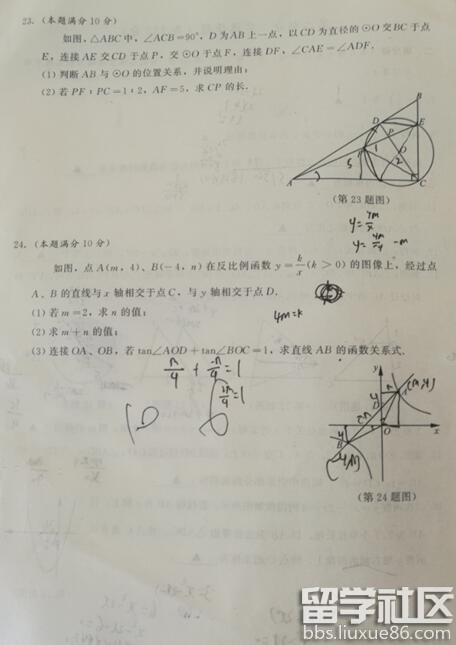 23. (本题满分 10 分)
如图, △ABC 中, ∠ACB=90°, D 为 AB 上一点, 以 CD 为直径的 ⊙O 交 BC 于点
E, 连接 AE 交 CD 于点 P, 交 ⊙O 于点 F, 连接 DF, ∠CAE=∠ADF.
(1) 判断 AB 与 ⊙O 的位置关系, 并说明理由;
(2) 若 PF : PC=1 : 2, AF=5, 求 CP 的长.
B
D
E
P
F
1
O
2
5
A
C
(第 23 题图)
y=4m/x
y=4m/-4 -m
24. (本题满分 10 分)
如图, 点 A(m, 4)、B(-4, n) 在反比例函数 y=k/x (k>0) 的图像上, 经过点
A、B 的直线与 x 轴相交于点 C, 与 y 轴相交于点 D.
(1) 若 m=2, 求 n 的值;
4m=k
(2) 求 m+n 的值;
(3) 连接 OA、OB, 若 tan∠AOD+tan∠BOC=1, 求直线 AB 的函数关系式.
n/4 + -n/4 =1
y
(m,4)
D
O
x
(-4,n)
(第 24 题图)
留学社区
bbs.liuxue86.com